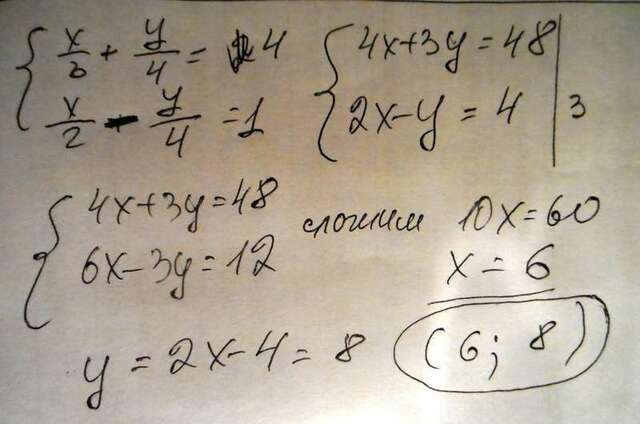 x/3 + y/4 = 4
x/2 - y/4 = 1
4x+3y=48
2x-y=4 | 3
4x+3y=48
6x-3y=12
сложим 10x=60
x=6
y=2x-4=8 (6; 8)